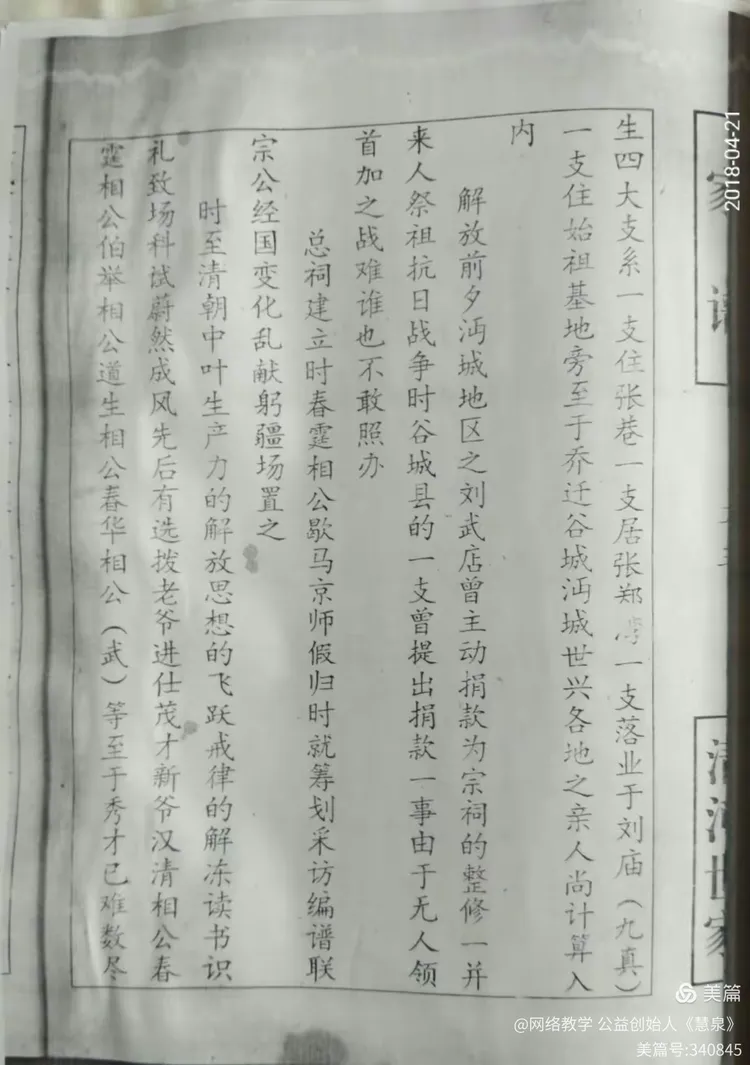 家谱
清河世家
生四大支系一支住张巷一支居张郑湾一支落业于刘庙（九真）
一支住始祖基地旁至于乔迁谷城沔城世兴各地之亲人尚计算入
内
解放前夕沔城地区之刘武店曾主动捐款为宗祠的整修一并
来人祭祖抗日战争时谷城县的一支曾提出捐款一事由于无人领
首加之战难谁也不敢照办
总祠建立时春霆相公歇马京师假归时就筹划采访编谱联
宗公经国变化乱献躬疆场置之
时至清朝中叶生产力的解放思想的飞跃戒律的解冻读书识
礼致场科试蔚然成风先后有选拨老爷进仕茂才新爷汉清相公春
霆相公伯举相公道生相公春华相公（武）等至于秀才已难数尽
2018-04-21
美篇
@网络教学 公益创始人《慧泉》
美篇号:340845